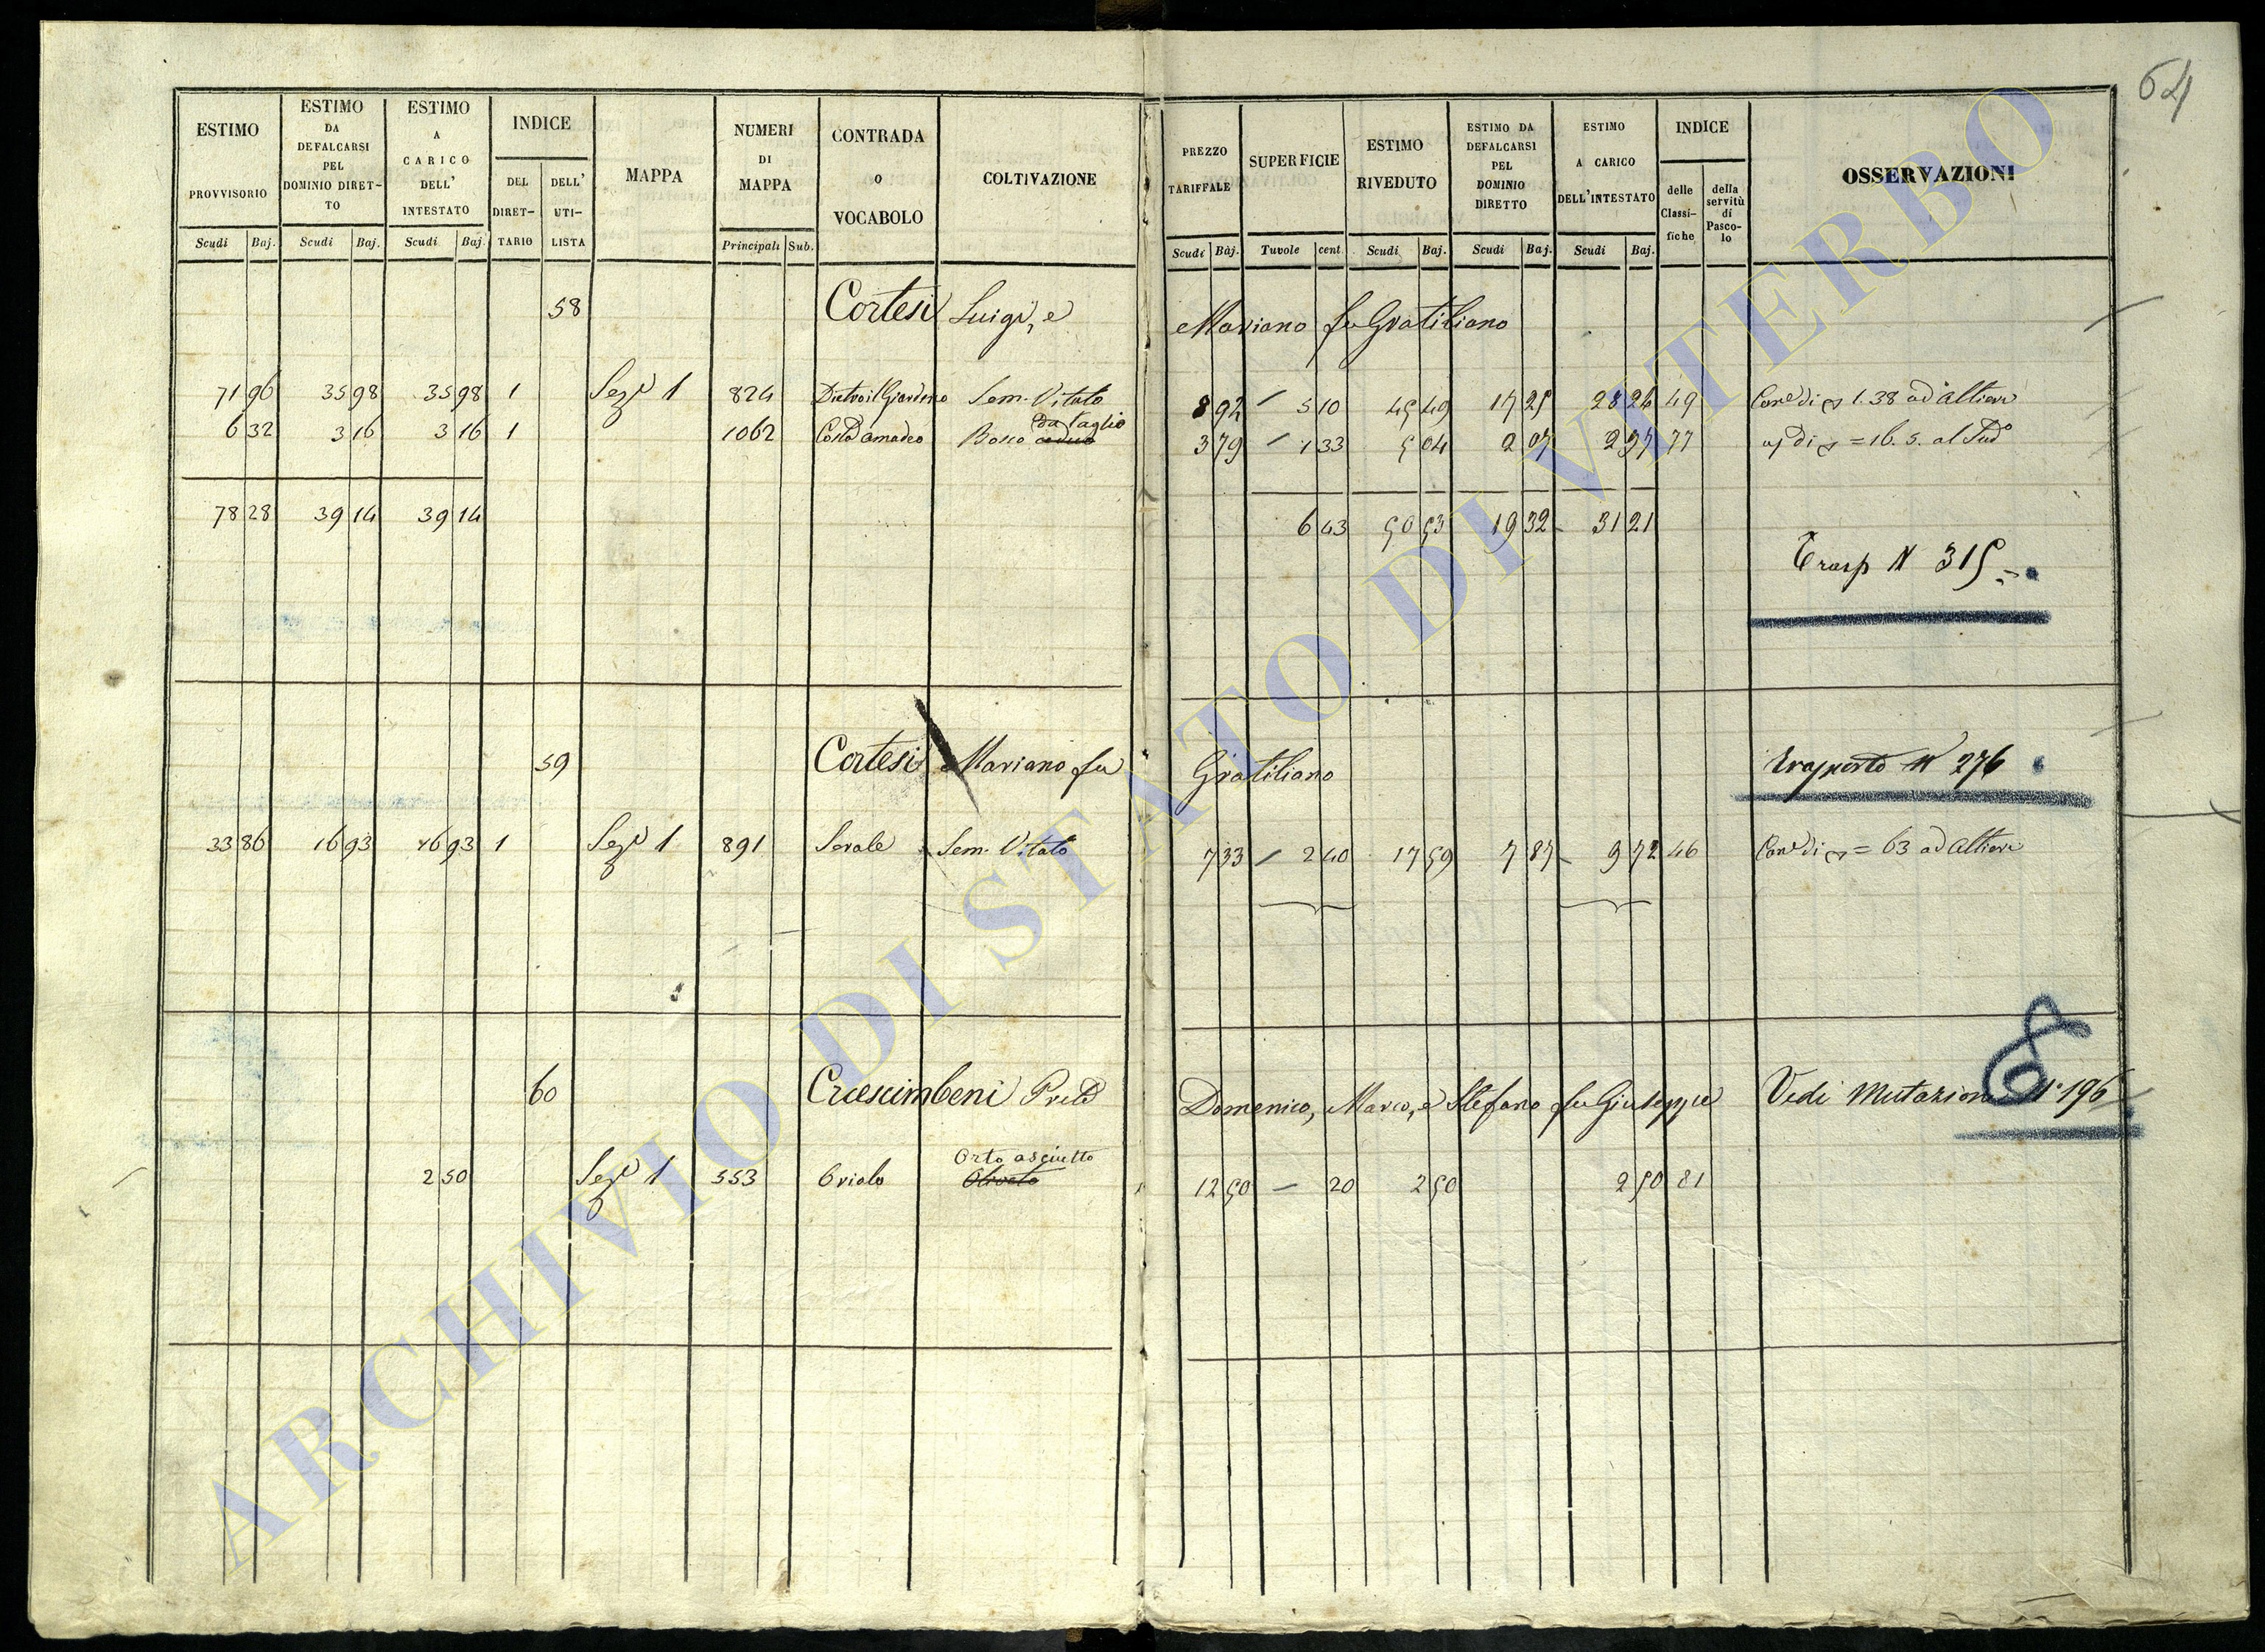 64
ESTIMO PROVVISORIO
ESTIMO DA DEFALCARSI PEL DOMINIO DIRET- TO
ESTIMO A CARICO DELL' INTESTATO
INDICE
DEL DIRET- TARIO
DELL' UTI- LISTA
MAPPA
NUMERI DI MAPPA
CONTRADA O VOCABOLO
COLTIVAZIONE
PREZZO TARIFFALE
SUPERFICIE
ESTIMO RIVEDUTO
ESTIMO DA DEFALCARSI PEL DOMINIO DIRETTO
ESTIMO A CARICO DELL'INTESTATO
INDICE
delle Classi- fiche
della servitù di Pasco- lo
OSSERVAZIONI
Scudi Baj. Scudi Baj. Scudi Baj. Principali Sub. Scudi Baj. Tavole cent. Scudi Baj. Scudi Baj. Scudi Baj.
58 Cortesi Luigi, e Mariano fu Gratiliano
71 96 35 98 35 98 1 Sez.e 1 824 Dietro il Giardino Sem. Vitato 8 92 5 10 45 49 17 25 28 24 49 ad Altieri
da taglio
6 32 3 16 3 16 1 1062 Costa amadeo Bosco ceduo 3 79 1 33 5 04 2 07 2 97 77
78 28 39 14 39 14 6 43 50 53 19 32 31 21
Trasp N 315
59 Cortesi Mariano fu Gratiliano Trasporto N 276
33 86 16 93 16 93 1 Sez.e 1 891 Serale Sem. Vitato 7 33 2 40 17 59 7 87 9 72 46 63 ad Altieri
60 Crescimbeni Domenico, Marco, e Stefano fu Giuseppe Vedi Mutazione N° 196
8
Orto asciutto
2 50 Sez.e 1 553 Oriolo Olivato 12 50 20 2 50 2 50 81
ARCHIVIO DI STATO DI VITERBO